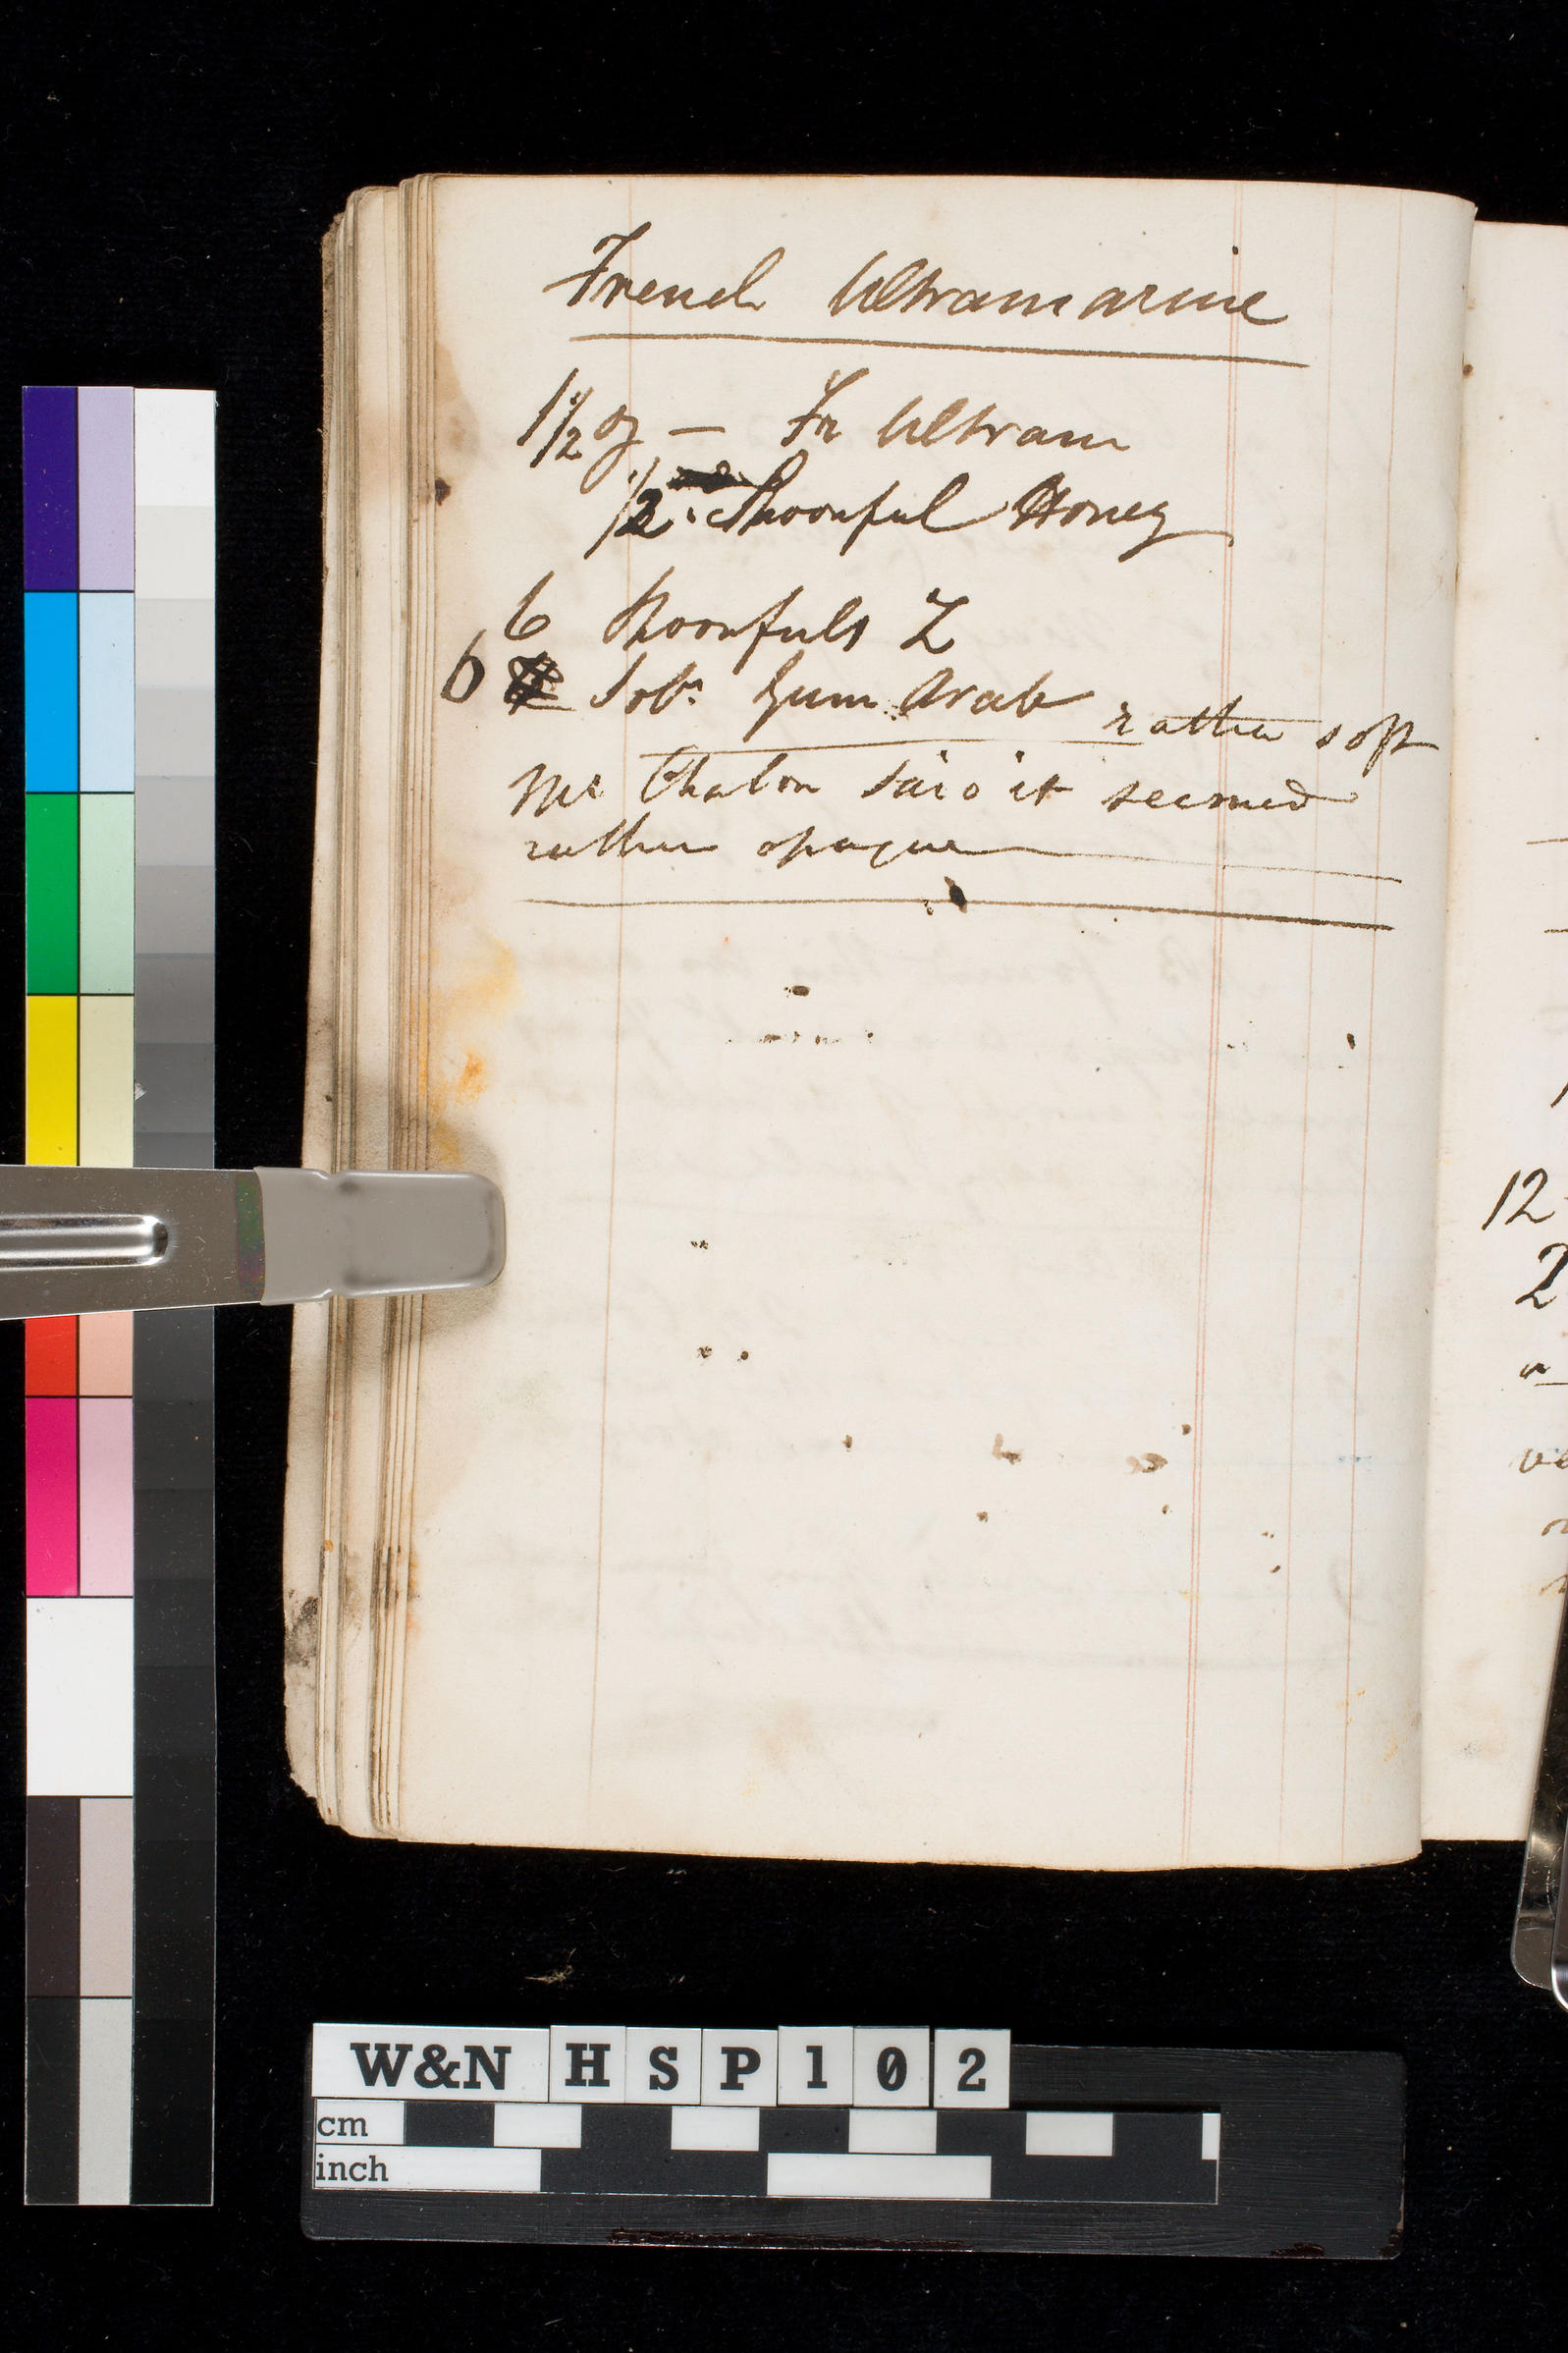 French Ultramarine
1 1/2 oz — Fr Ultram
1/2 Spoonful Honey
6 Spoonfuls Z
6 Sol.n Gum Arab rather soft
Mr Chalon said it seemed
rather opaque
12
2
W&N H S P 1 0 2
cm
inch